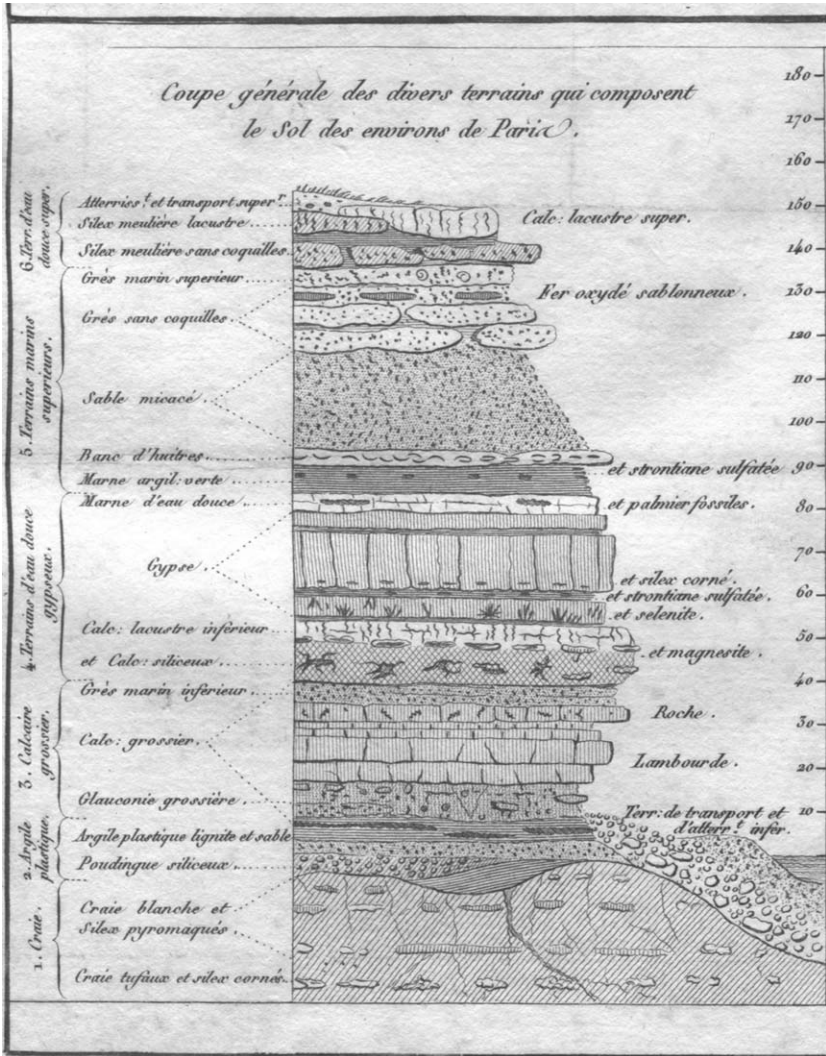 Coupe générale des divers terrains qui composent
le Sol des environs de Paris.
180
170
160
150
140
130
120
110
100
90
80
70
60
50
40
30
20
10
6. Terr. d'eau
douce super.
5. Terrains marins
superieurs.
4. Terrains d'eau douce
gypseux.
3. Calcaire
grossier.
2. Argile
plastique.
1. Craie.
Atterriss.t et transport super.r
Silex meulière lacustre
Silex meulière sans coquilles
Grès marin superieur
Grès sans coquilles
Sable micacé
Banc d'huitres
Marne argil: verte
Marne d'eau douce
Gypse
Calc: lacustre inférieur
et Calc: siliceux
Grès marin inférieur
Calc: grossier
Glauconie grossière
Argile plastique lignite et sable
Poudingue siliceux
Craie blanche et
Silex pyromaqués
Craie tufaux et silex cornés
Calc: lacustre super.
Fer oxydé sablonneux.
et strontiane sulfatée
et palmier fossiles.
et silex corné.
et strontiane sulfatée.
et selenite.
et magnesite.
Roche.
Lambourde.
Terr: de transport et
d'atterr.t infér.